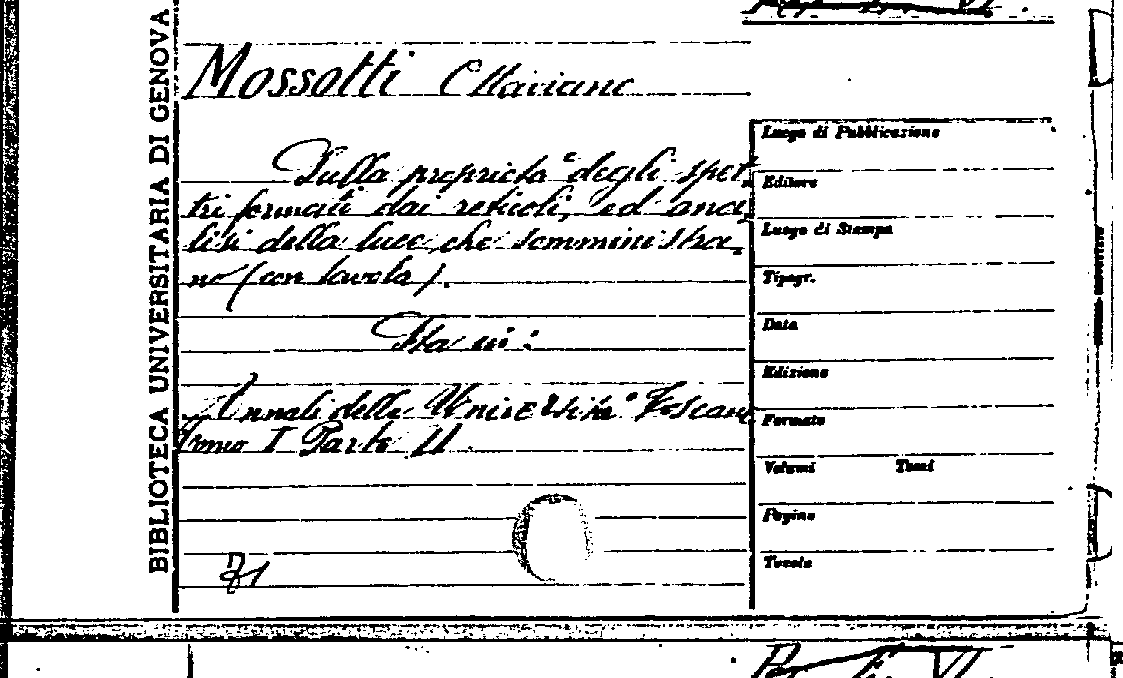 BIBLIOTECA UNIVERSITARIA DI GENOVA
Mossotti Ottaviano
Sulla proprietà degli spet-
tri formati dai reticoli, ed ana-
lisi della luce, che somministra-
no (con tavola).
Sta in:
Annali delle Università Toscane
Anno I Parte II.
Luogo di Pubblicazione
Editore
Luogo di Stampa
Tipogr.
Data
Edizione
Formato
Volumi Tomi
Pagine
Tavole